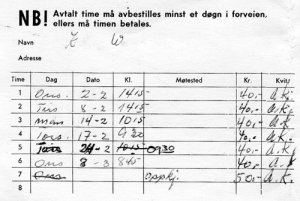 NB! Avtalt time må avbestilles minst et døgn i forveien,
ellers må timen betales.
Navn
Adresse
Time Dag Dato Kl. Møtested Kr. Kvitt.
1 Ons. 2-2 1415 40,- A.K.
2 Tirs 8-2 1415 40,- A.K.
3 man 14-2 1015 40,- A.K.
4 Tors. 17-2 930 40,- A.K.
5 24-2 1015 0930 40,- A.K.
6 Ons 8-3 845 40,- A.K.
7 Ons Oppkj. 50,- A.K.
8